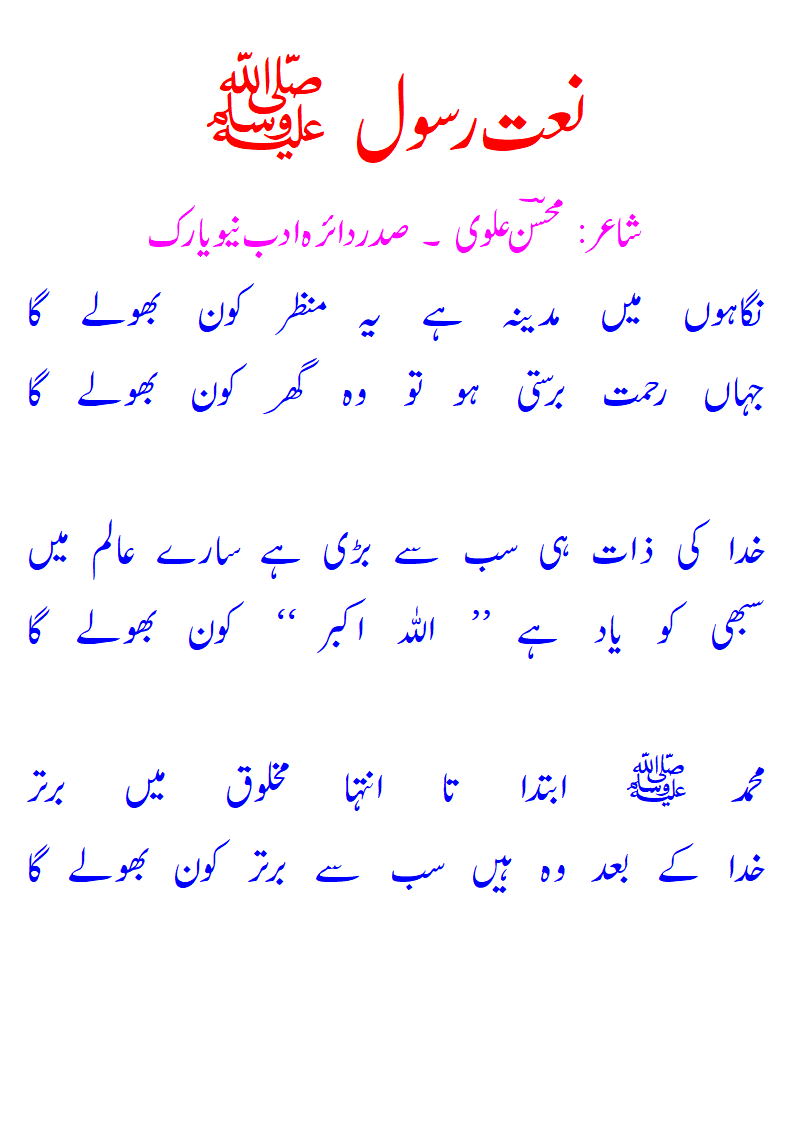 نعت رسول ﷺ
شاعر: محسنؔ علوی ۔ صدر دائرہ ادب نیویارک
نگاہوں میں مدینہ ہے یہ منظر کون بھولے گا
جہاں رحمت برستی ہو تو وہ گھر کون بھولے گا
خدا کی ذات ہی سب سے بڑی ہے سارے عالم میں
سبھی کو یاد ہے ’’ اللہ اکبر ‘‘ کون بھولے گا
محمد ﷺ ابتدا تا انتہا مخلوق میں برتر
خدا کے بعد وہ ہیں سب سے برتر کون بھولے گا